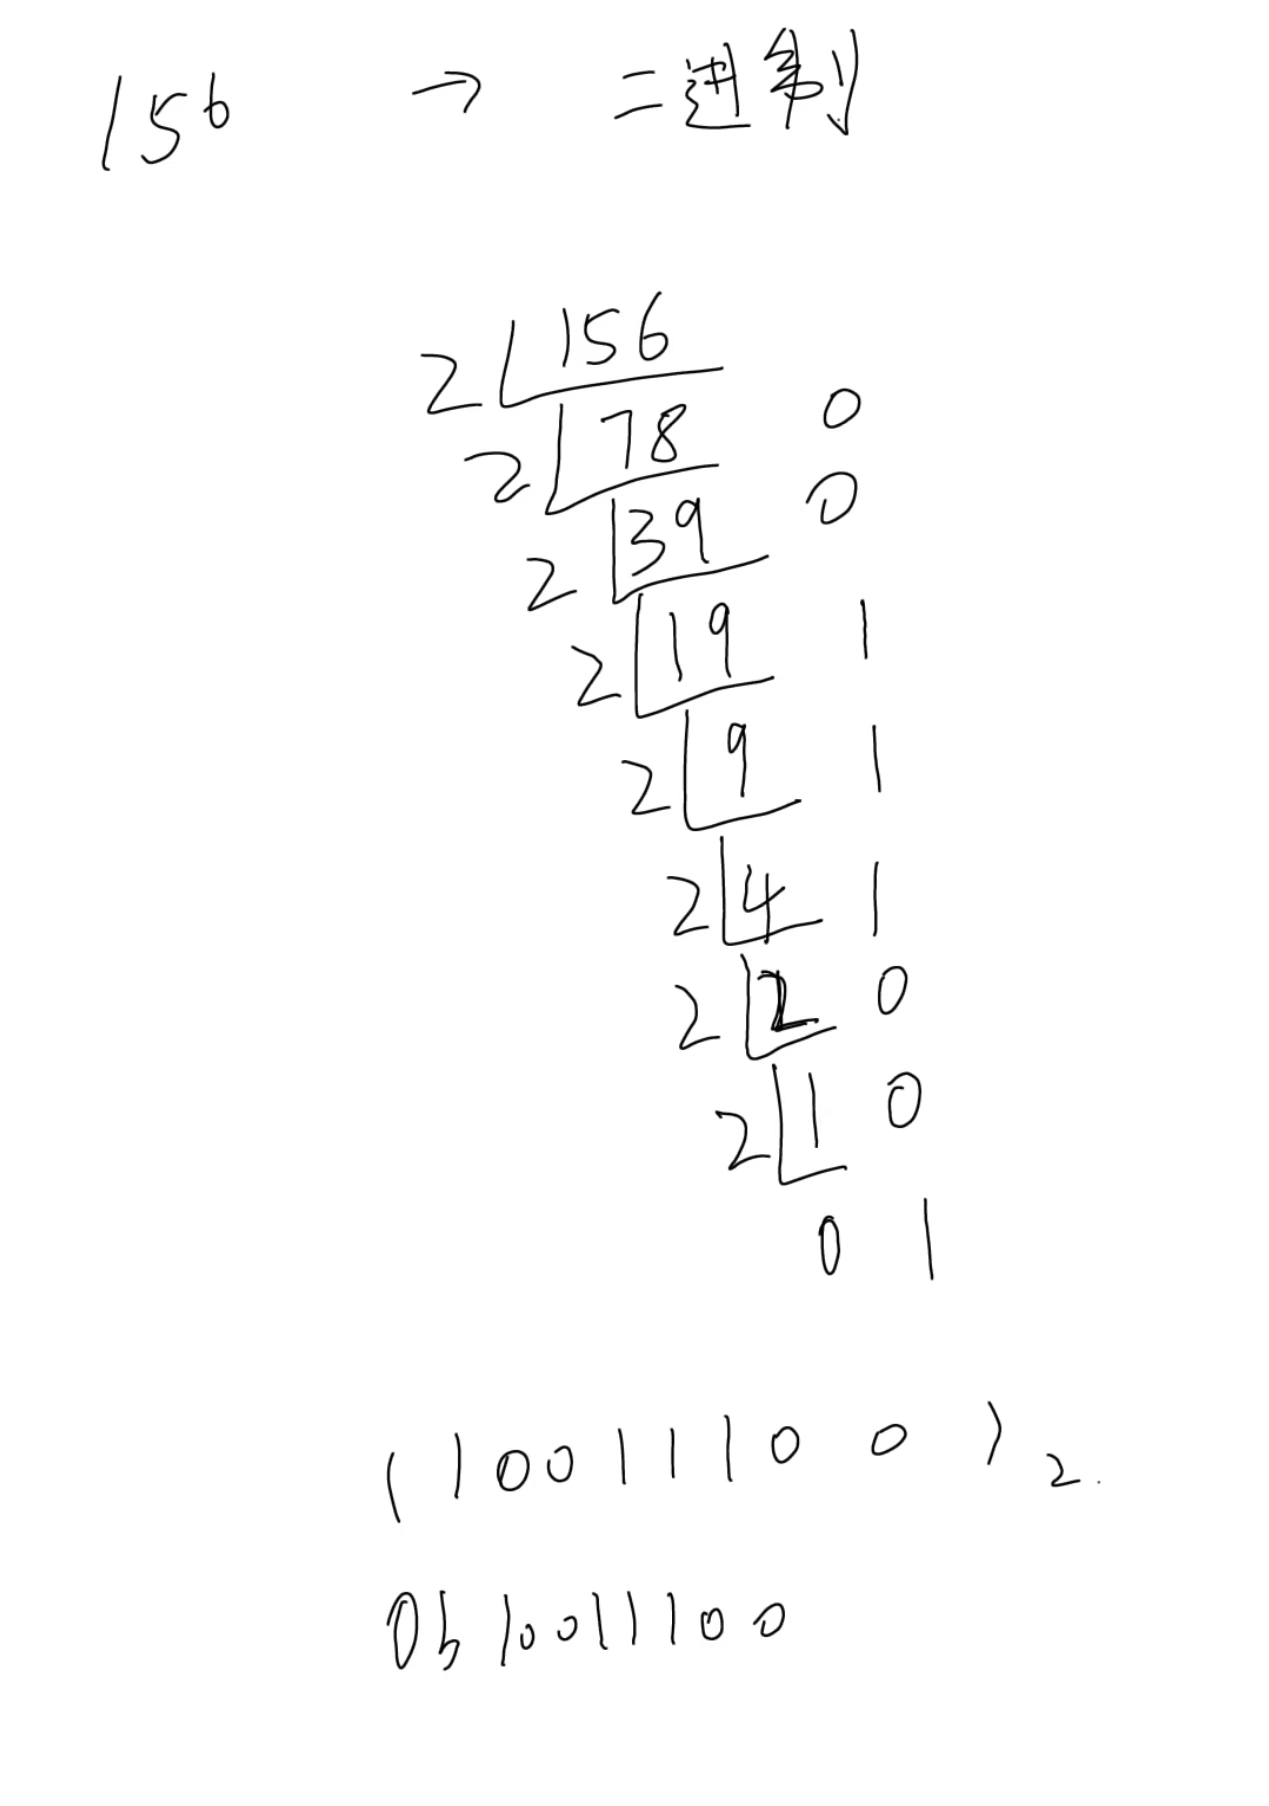 156 → 二进制
2 156
2 78 0
2 39 0
2 19 1
2 9 1
2 4 1
2 2 0
2 1 0
0 1
(10011100)2.
0b10011100